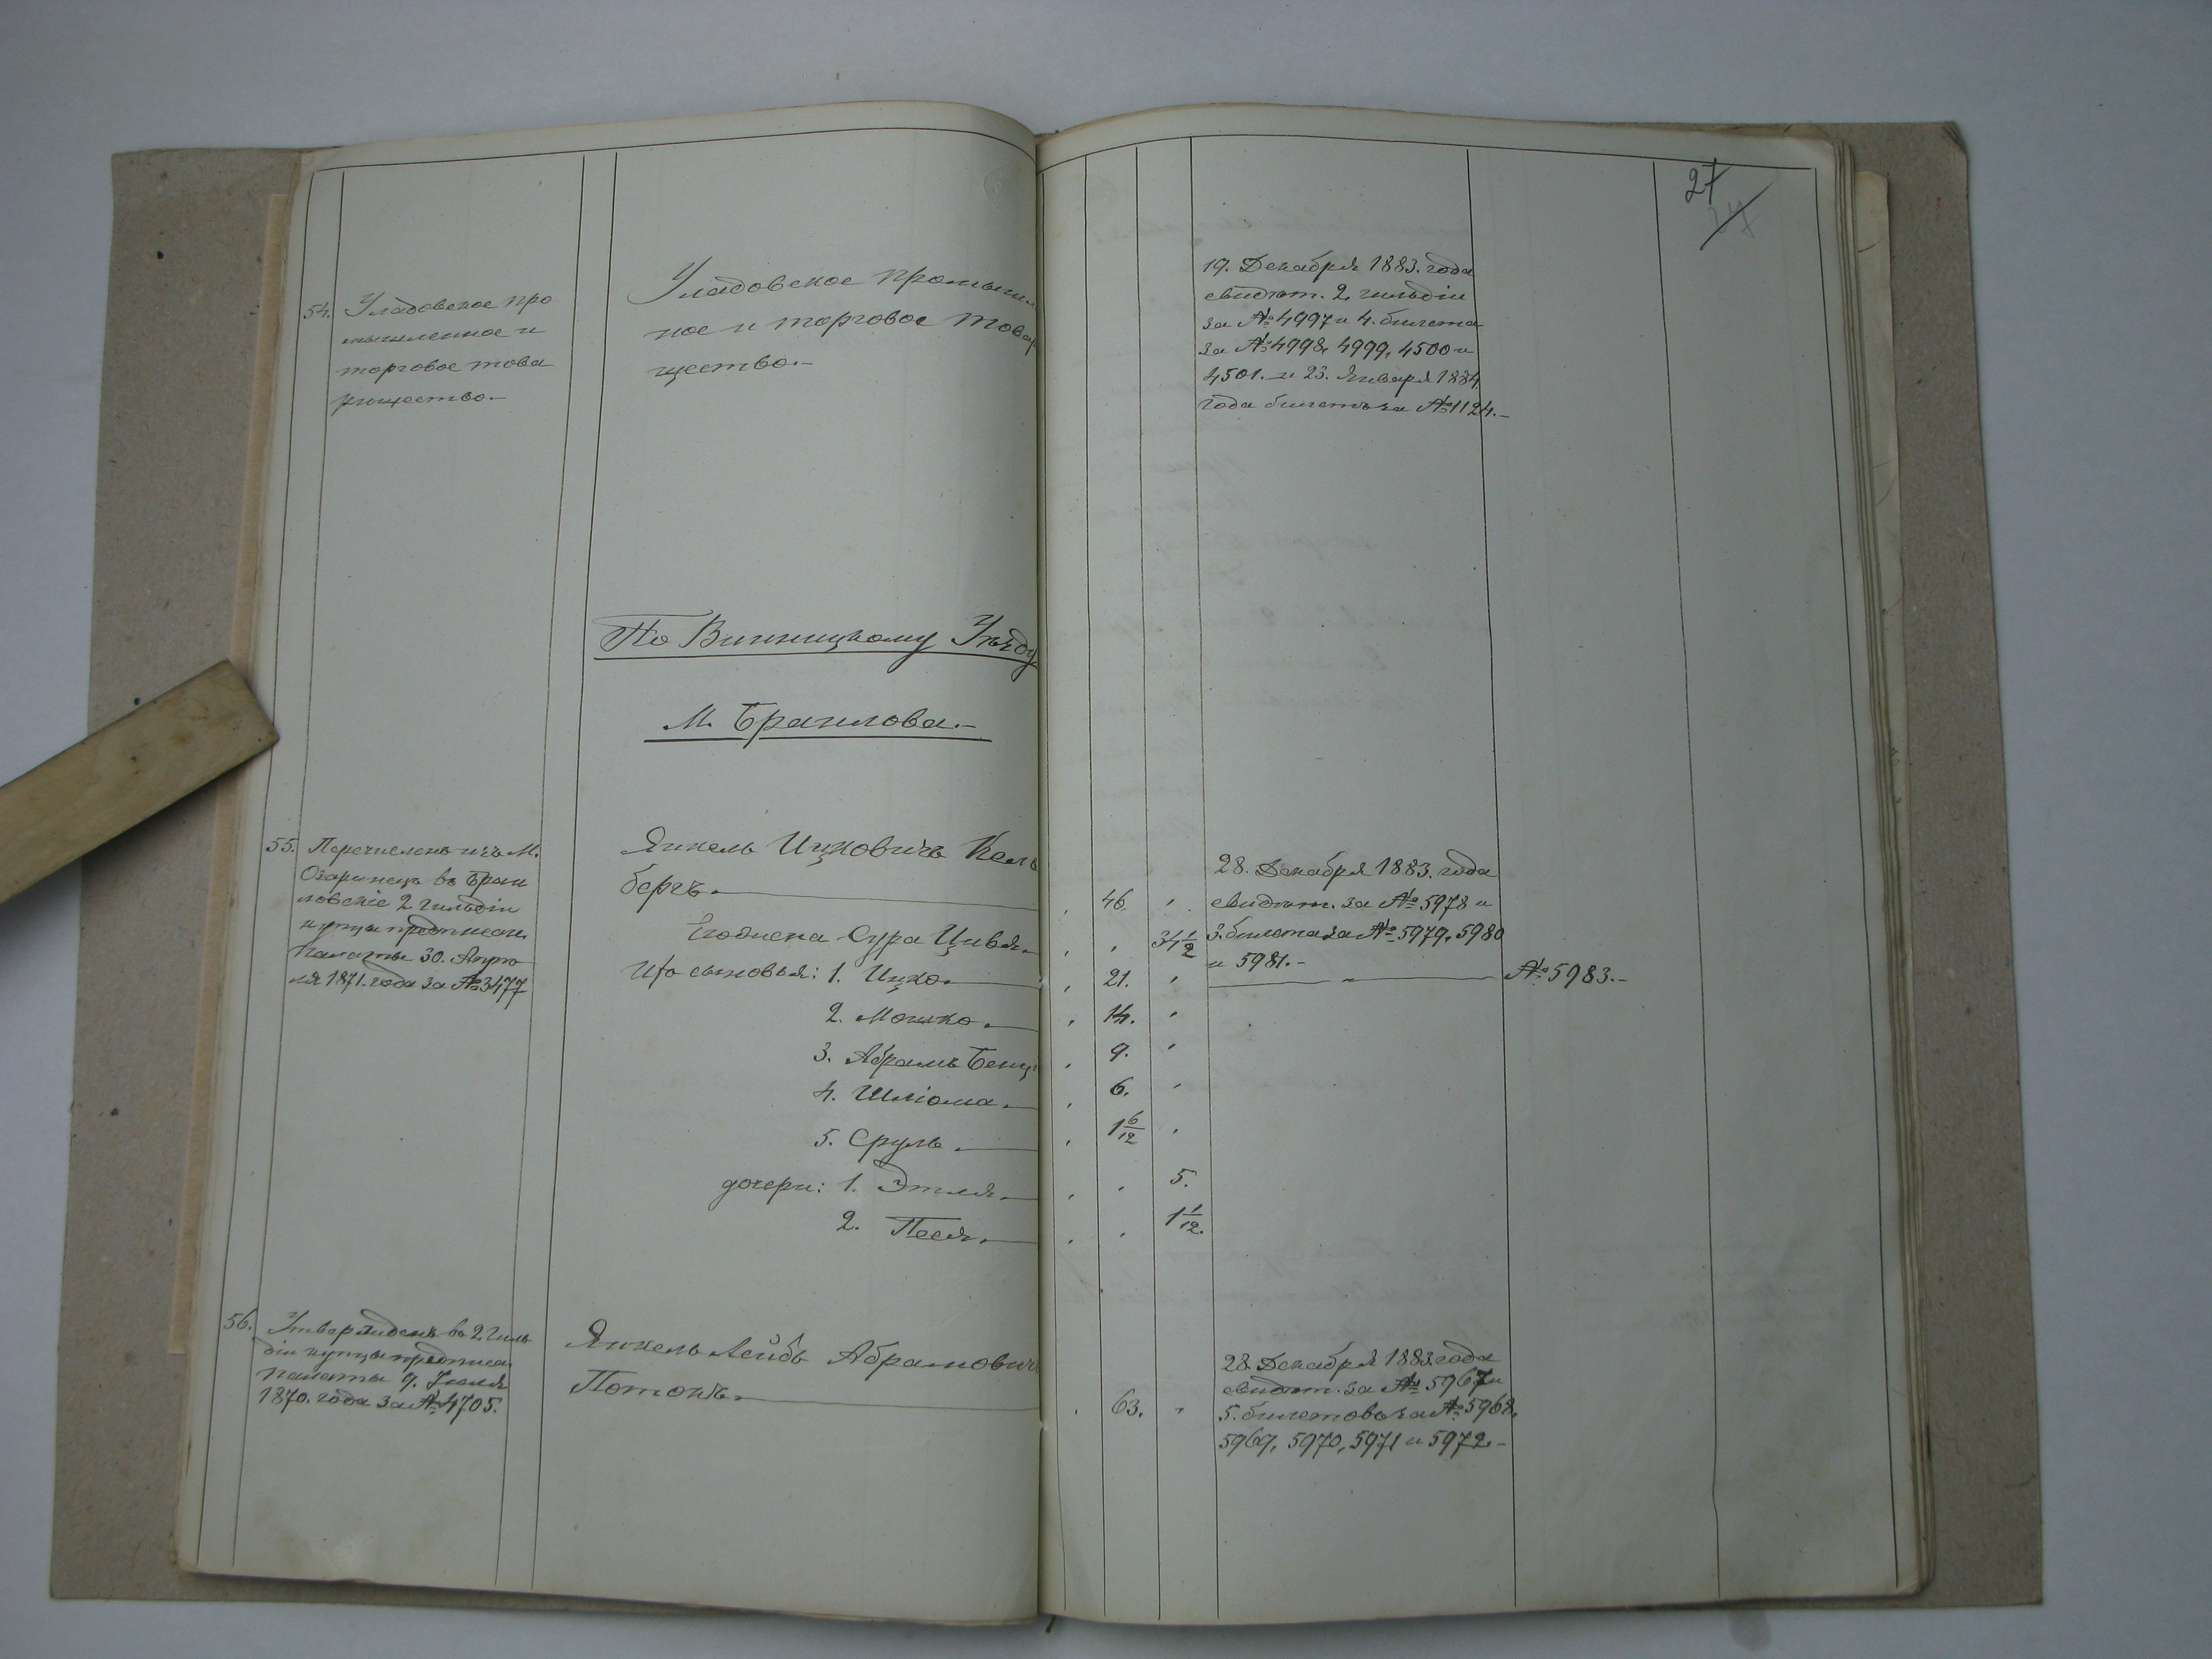 27
54. Уладовское про
мышленное и
торговое това
рищество.-
Уладовское промышлен
ное и торговое Товар
щество.-
19. Декабря 1883. года
свидѣт. 2 гильдіи
за № 4997 и 4. билета
за № 4998, 4999, 4500 и
4501. и 23. Января 1884.
года билетъ за № 1124.-
По Винницкому Уѣзду
М. Браилова.-
55. Перечисленъ изъ М.
Озаринецъ въ Браи
ловскіе 2 гильдіи
купцы предписан.
Палаты 30. Апрѣ
ля 1871. года за № 3477
Янкель Ицковичъ Кель
бергъ.
46.
Его жена Сура Цивья.
34 1/2
Его сыновья: 1. Ицко.
21.
2. Мошко.
14.
3. Абрамъ Бенц
9.
4. Шліома.
6.
5. Сруль.
1 6/12
дочери: 1. Этля.
5.
2. Песя.
1 1/12.
28. Декабря 1883. года
свидѣт. за № 5978 и
3. билета за № 5979, 5980
и 5981.-
№ 5983.-
56. Утвержденъ въ 2 гиль
діи купцы предписа
Палаты 9. Іюля
1870. года за № 4705.
Янкель Лейбъ Абрамович
Потокъ.
63.
28 Декабря 1883. года
свидѣт. за № 5967 и
5. билетовъ за № 5968,
5969, 5970, 5971 и 5972.-